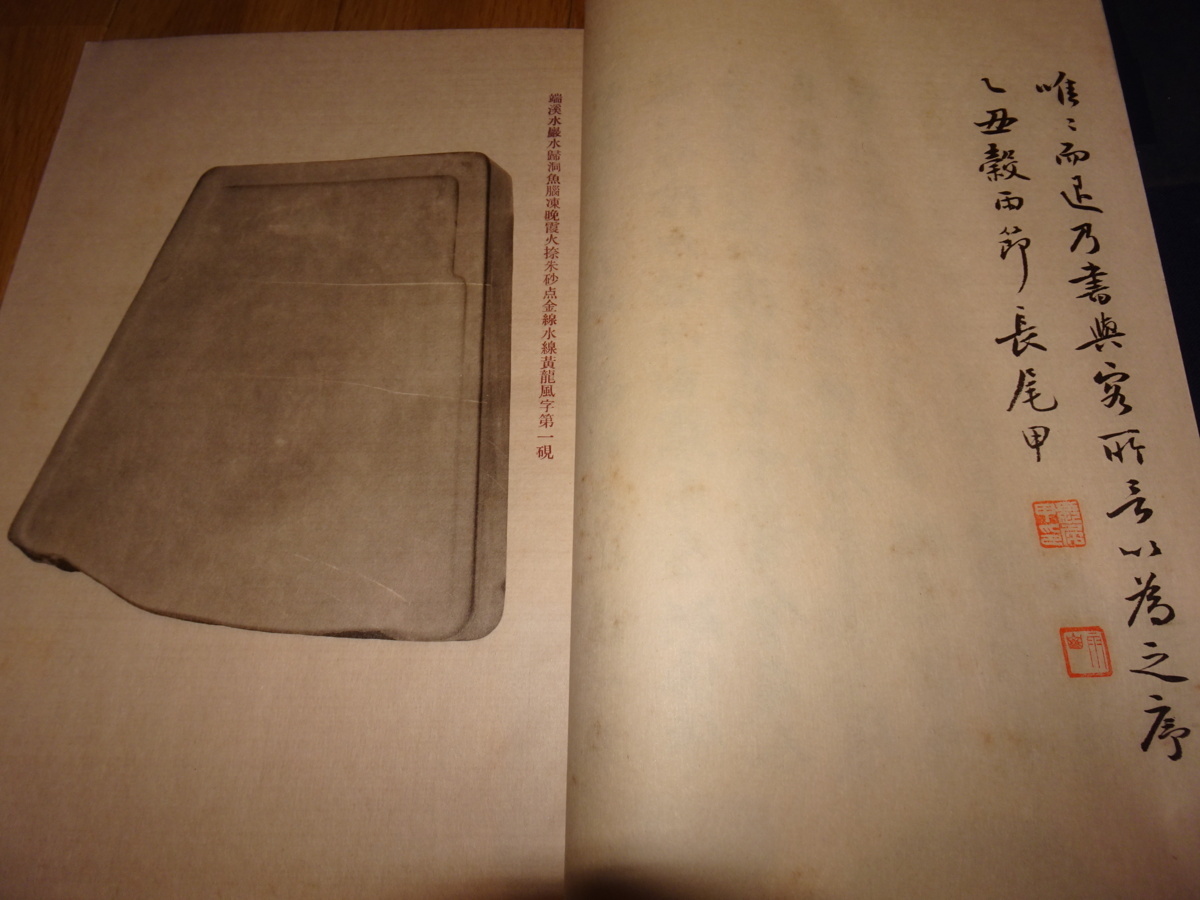 唯〻而退乃書與客所言以為之序
乙丑穀雨節長尾甲
端溪水巖水歸洞魚腦凍晚霞火捺朱砂点金線水線黃龍風字第一硯